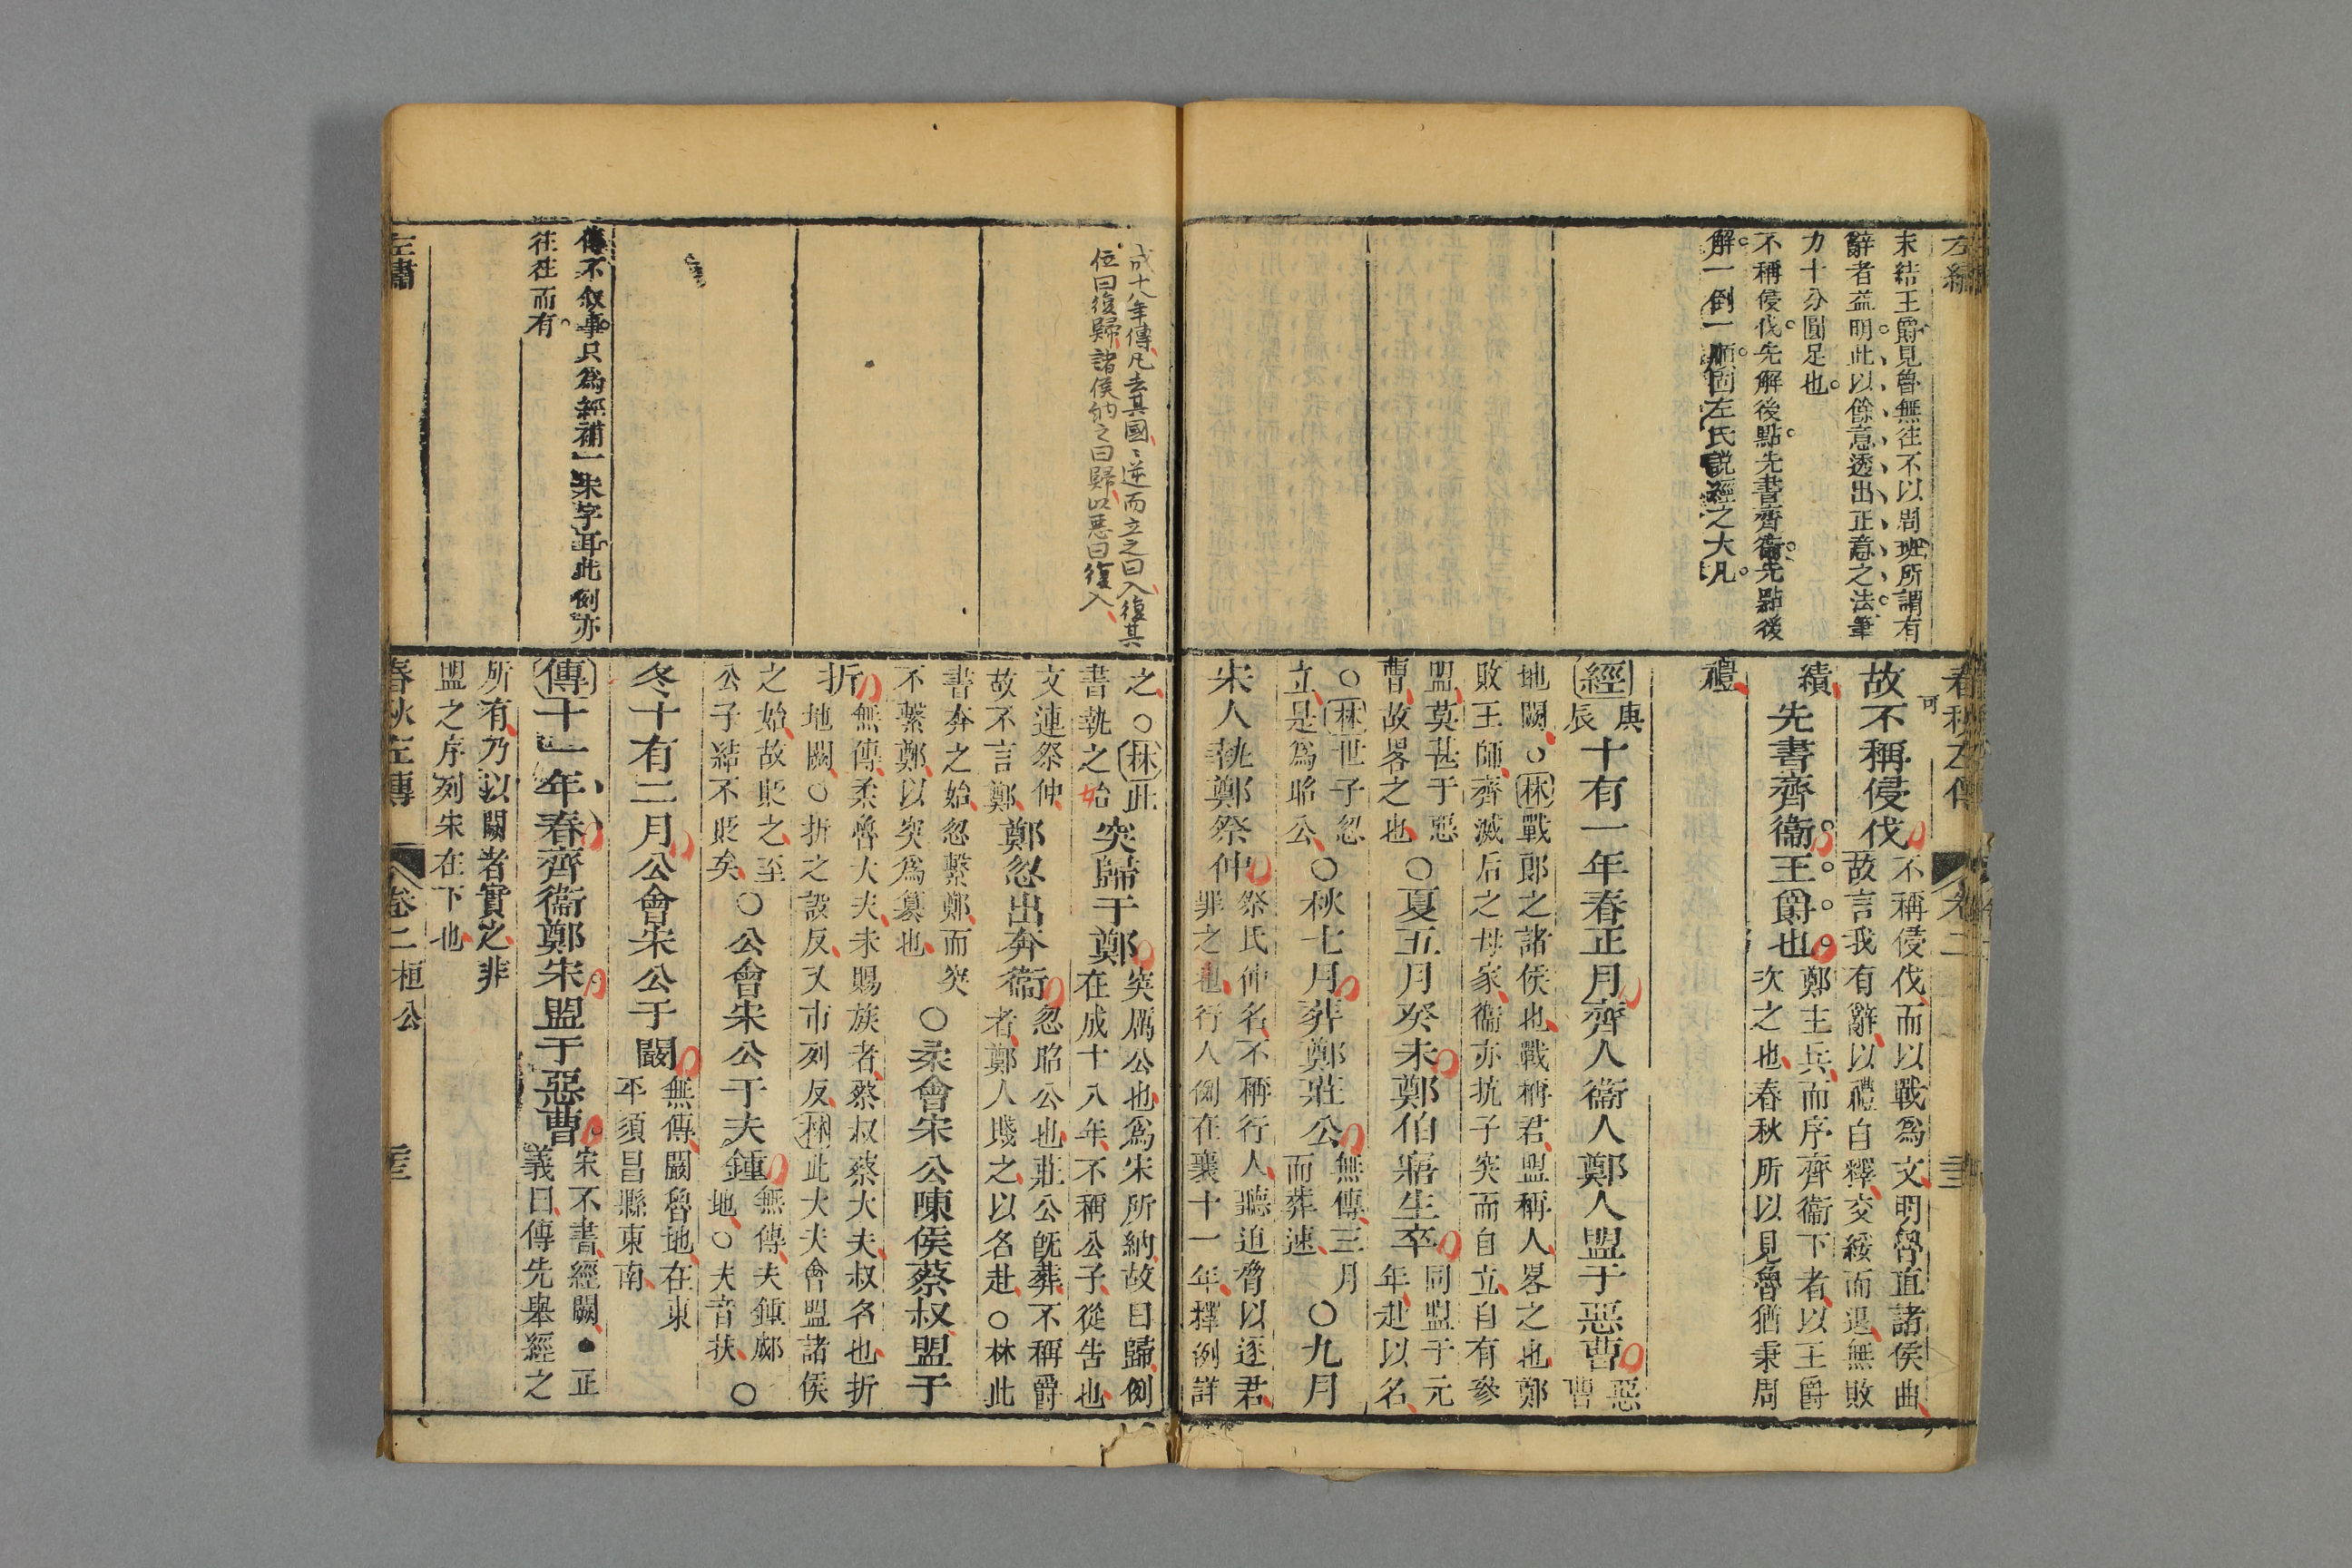 左繡
末結王爵見魯無往不以周班所謂有
辭者益明此以餘意透出正意之法筆
力十分圓足也
不稱侵伐先解後點先書齊衞先點後
解一倒一順固左氏說經之大凡
春秋左傳
卷二
可
故不稱侵伐
不稱侵伐而以戰爲文明魯直諸侯曲
故言我有辭以禮自釋交綏而退無敗
績
先書齊衞王爵也
鄭主兵而序齊衞下者以王爵
次之也春秋所以見魯猶秉周
禮
經
庚辰
十有一年春正月齊人衞人鄭人盟于惡曹
惡曹
地闕○林戰郎之諸侯也戰稱君盟稱人畧之也鄭
敗王師齊滅后之母家衞亦抗子突而自立自有參
盟莫甚于惡
曹故畧之也
○夏五月癸未鄭伯寤生卒
同盟于元
年赴以名
○林世子忽
立是爲昭公
○秋七月葬鄭莊公
無傳三月
而葬速
○九月
宋人執鄭祭仲
祭氏仲名不稱行人聽迫脅以逐君
罪之也行人例在襄十一年釋例詳
成十八年傳凡去其國、逆而立之曰入復其
位曰復歸諸侯納之曰歸以惡曰復入
之○林此
書執之始
突歸于鄭
突厲公也爲宋所納故曰歸例
在成十八年不稱公子從告也
文連祭仲
故不言鄭
鄭忽出奔衞
忽昭公也莊公旣葬不稱爵
者鄭人賤之以名赴○林此
書奔之始忽繫鄭而突
不繫鄭以突爲簒也
○柔會宋公陳侯蔡叔盟于
折
無傳柔魯大夫未賜族者蔡叔蔡大夫叔名也折
地闕○折之設反又市列反林此大夫會盟諸侯
之始故貶之至
公子結不貶矣
○公會宋公于夫鍾
無傳夫鍾郕
地○夫音扶
○
冬十有二月公會宋公于闞
無傳闞魯地在東
平須昌縣東南
傳不叙事只爲經補一宋字耳此例亦
往往而有
傳
十一年春齊衞鄭宋盟于惡曹
宋不書經闕●正
義曰傳先舉經之
所有乃以闕者實之非
盟之序列宋在下也
左繡
春秋左傳
卷二
桓公